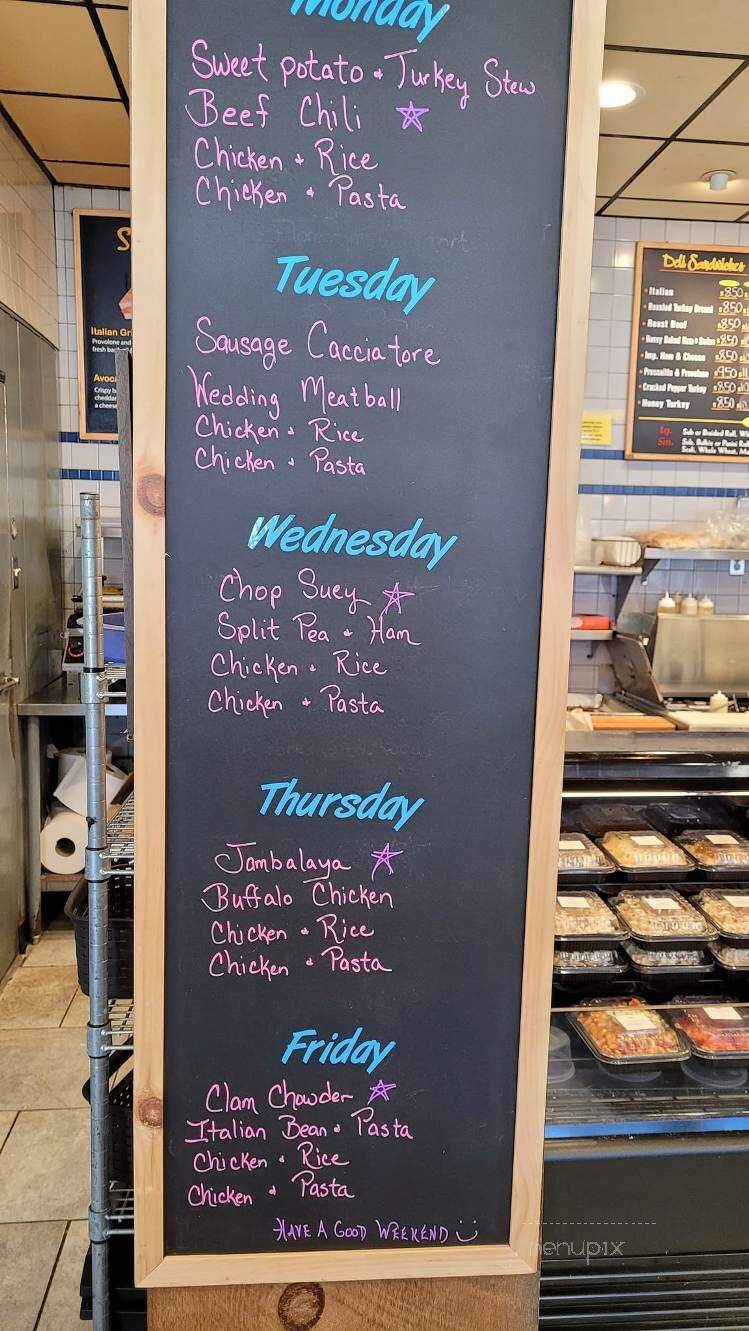 Monday
Sweet potato & Turkey Stew
Beef Chili
Chicken & Rice
Chicken & Pasta
Tuesday
Sausage Cacciatore
Wedding Meatball
Chicken & Rice
Chicken & Pasta
Wednesday
Chop Suey
Split Pea & Ham
Chicken & Rice
Chicken & Pasta
Thursday
Jambalaya
Buffalo Chicken
Chicken & Rice
Chicken & Pasta
Friday
Clam Chowder
Italian Bean & Pasta
Chicken & Rice
Chicken & Pasta
HAVE A GOOD WEEKEND
Italian Gri
Provolone and
fresh bas
Avoca
Crispy b
cheddar
a cheese
Deli Sandwiches
• Italian 8.50
• Roasted Turkey Breast 8.50
• Roast Beef 8.50
• Honey Baked Ham & Swiss 8.50
• Imp. Ham & Cheese 8.50
• Prosciutto & Provolone 9.50
• Cracked Pepper Turkey 8.50
• Honey Turkey 8.50
Lg. Sub or Braided Roll, Wh
Sm.
menupix